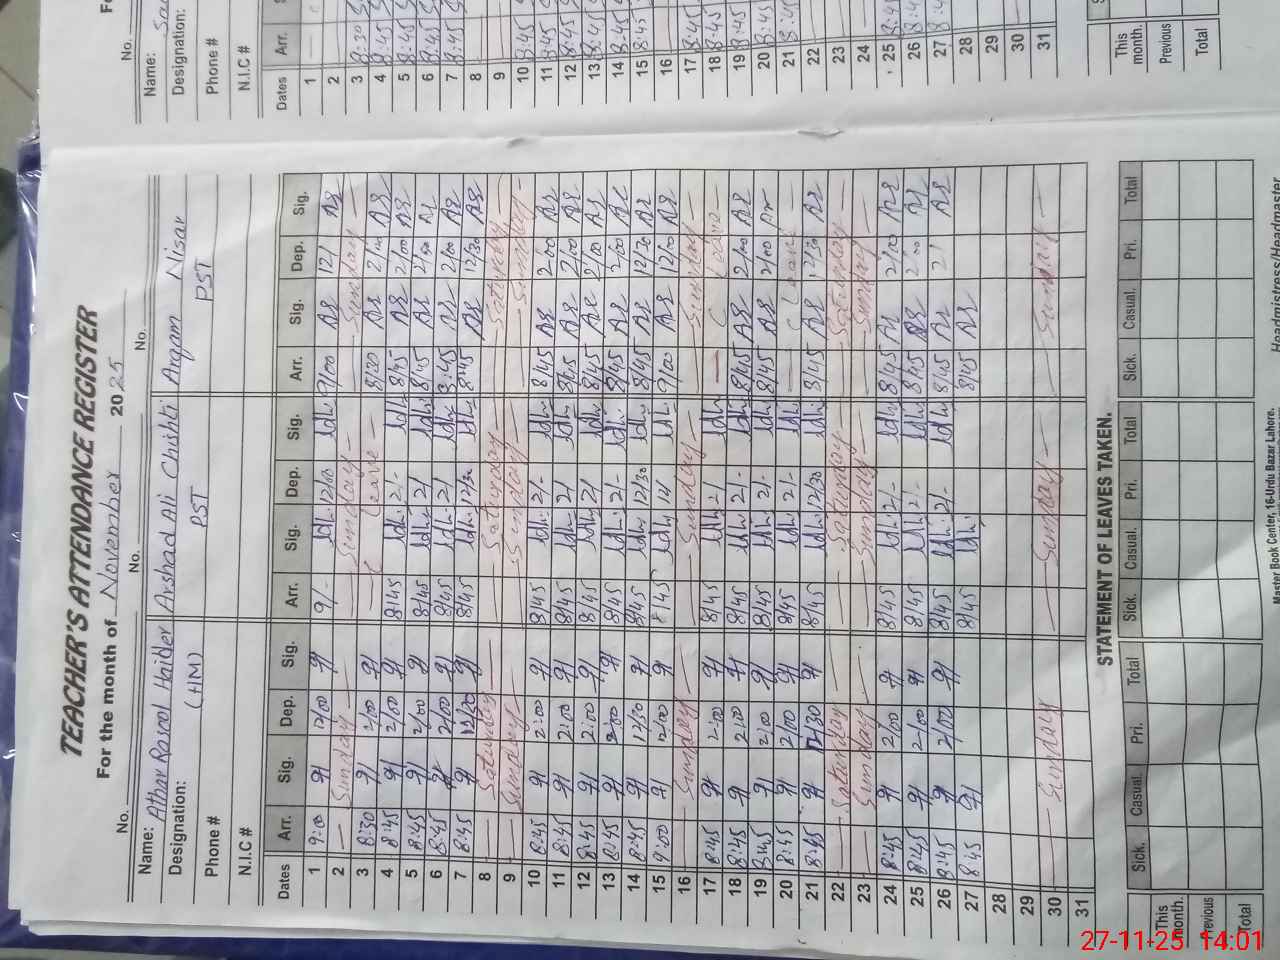 TEACHER'S ATTENDANCE REGISTER
For the month of November 2025
No. No. No.
Name: Athar Rasool Haider Arshad Ali Chishti Arqam Nisar
Designation: (HM) PST PST
Phone #
N.I.C #
Dates Arr. Sig. Dep. Sig. Arr. Sig. Dep. Sig. Arr. Sig. Dep. Sig.
1 9:00 12/00 9/- 12/00 9/00 12/
2 Sunday Sunday Sunday
3 8:30 2/00 Leave 8/20 2/00
4 8:45 2/00 8/45 2/- 8/45 2/00
5 8:45 2/00 8/45 2/ 8/45 2/00
6 8:45 2/00 8/45 2/ 8:45 2/00
7 8:45 12/30 8/45 12/30 8:45 12/30
8 Saturday Saturday Saturday
9 Sunday Sunday Sunday
10 8:45 2:00 8/45 2/- 8/45 2:00
11 8:45 2:00 8/45 2/ 8/45 2/00
12 8:45 2:00 8/45 2/ 8/45 2/00
13 8:45 2:00 8/45 2/- 8/45 2/00
14 8:45 12/30 8/45 12/30 8/45 12/30
15 9:00 12/00 8/45 12/ 9/00 12/00
16 Sunday Sunday Sunday
17 8:45 2:00 8/45 2/ Leave
18 8:45 2:00 8/45 2/- 8/45 2/00
19 8:45 2/00 8/45 2/- 8/45 2/00
20 8:45 2/00 8/45 2/- Leave
21 8:45 12/30 8/45 12/30 8/45 12/30
22 Saturday Saturday Saturday
23 Sunday Sunday Sunday
24 8:45 2/00 8/45 2/- 8/45 2/00
25 8:45 2/00 8/45 2/- 8/45 2:00
26 8:45 2/00 8/45 2/- 8/45 2/
27 8:45 8/45 8/45
28
29
30 Sunday Sunday Sunday
31
STATEMENT OF LEAVES TAKEN.
Sick. Casual. Pri. Total Sick. Casual. Pri. Total Sick. Casual. Pri. Total
This month.
Previous
Total
Master Book Center, 16-Urdu Bazar Lahore. Headmistress/Headmaster
No.
Name:
Designation:
Phone #
N.I.C #
Dates Arr.
1
2
3 8:30
4 8:45
5 8:45
6 8:45
7 8:45
8
9
10 8:45
11 8:45
12 8:45
13 8:45
14 8:45
15 8:45
16
17 8:45
18 8:45
19 8:45
20 8:45
21 8:45
22
23
24
25 8:45
26 8:45
27 8:4
28
29
30
31
This month.
Previous
Total
27-11-25 14:01